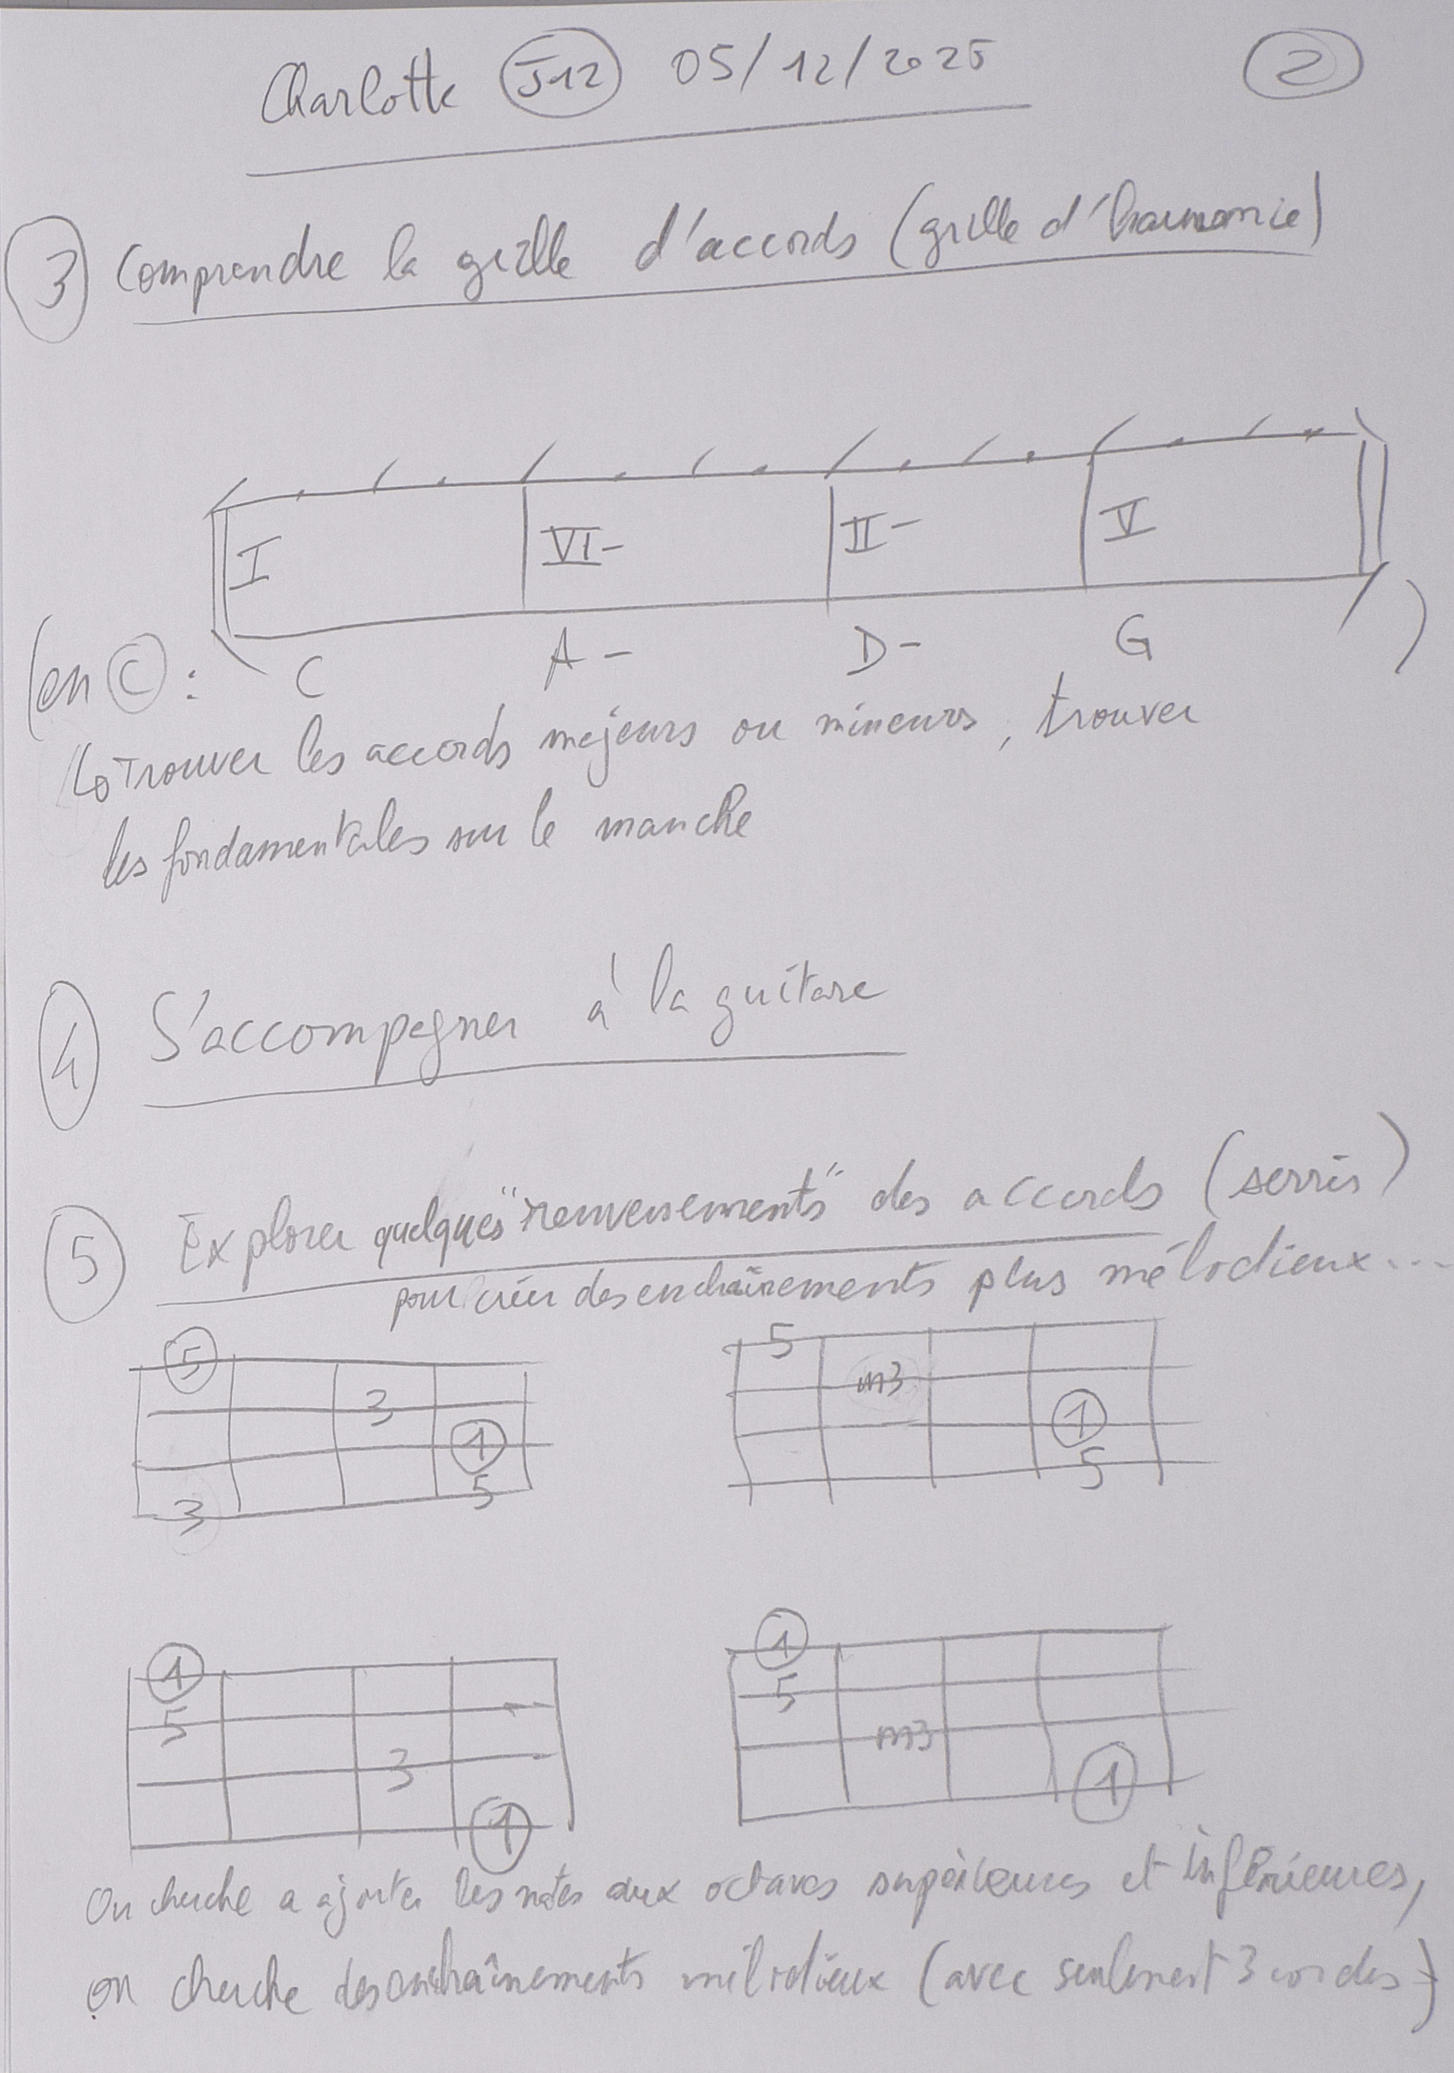 Charlotte J12 05/12/2025 2
3 Comprendre la grille d'accords (grille d'harmonie)
I VI- II- V
(en C : C A- D- G )
↳ Trouver les accords majeurs ou mineurs, trouver
les fondamentales sur le manche
4 S'accompagner à la guitare
5 Explorer quelques "renversements" des accords (serrés)
pour créer des enchaînements plus mélodieux...
5 5
3 m3
1 1
3 5 5
1 1
5 5
3 m3
1 1
On cherche a ajouter les notes aux octaves supérieures et inférieures,
on cherche des enchaînements mélodieux (avec seulement 3 cordes)